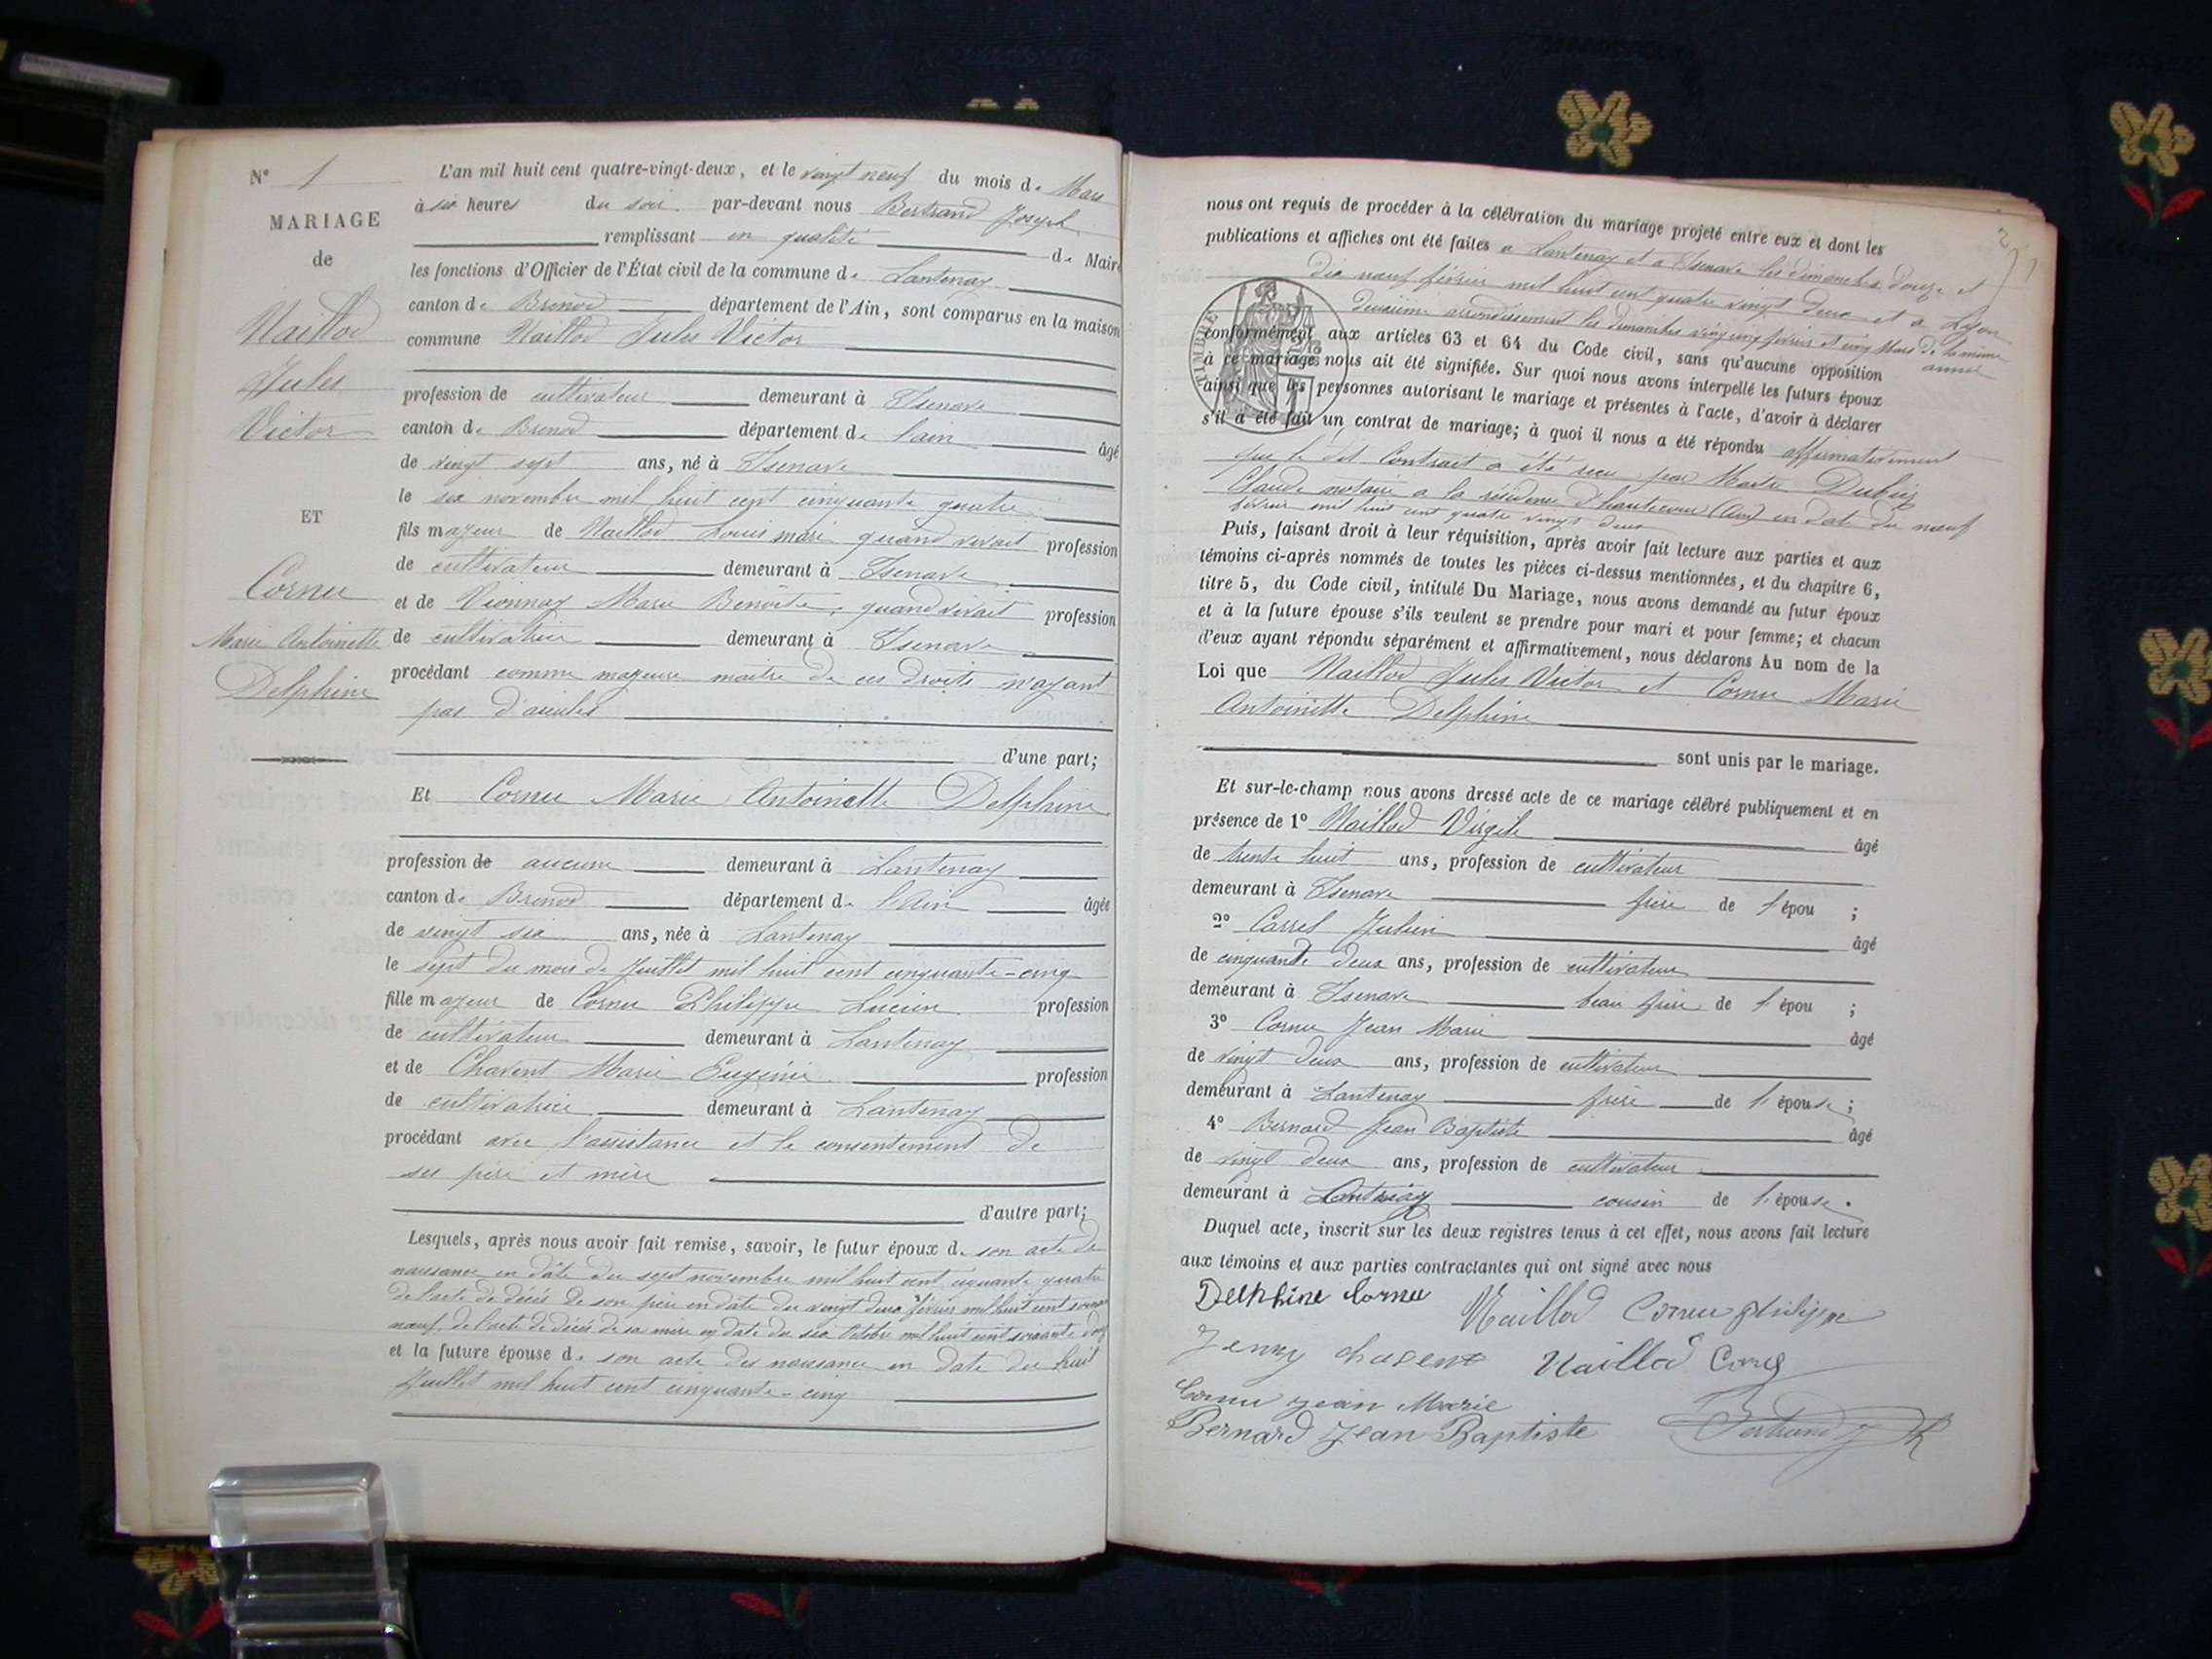 N° 1
MARIAGE
de
Naillod
Jules
Victor
ET
Cornu
Marie Antoinette
Delphine
L'an mil huit cent quatre-vingt-deux, et le vingt neuf du mois de Mars
à six heures du soir par-devant nous Bertrand Joseph
remplissant en qualité de Maire
les fonctions d'Officier de l'État civil de la commune de Lantenay
canton de Brenod département de l'Ain, sont comparus en la maison
commune Naillod Jules Victor
profession de cultivateur demeurant à Isenave
canton de Brenod département de l'ain âgé
de vingt sept ans, né à Isenave
le six novembre mil huit cent cinquante quatre
fils majeur de Naillod Louis marie quand vivait profession
de cultivateur demeurant à Isenave
et de Vionnay Marie Benoite, quand vivait profession
de cultivatrice demeurant à Isenave
procédant comme majeure maitre de ces droits n'ayant
pas d'aieules
d'une part;
Et Cornu Marie Antoinette Delphine
profession de aucune demeurant à Lantenay
canton de Brenod département de l'Ain âgée
de vingt six ans, née à Lantenay
le sept du mois de Juillet mil huit cent cinquante-cinq
fille majeur de Cornu Philippe Lucien profession
de cultivateur demeurant à Lantenay
et de Chavent Marie Eugénie profession
de cultivatrice demeurant à Lantenay
procédant avec l'assistance et le consentement de
ses père et mère
d'autre part;
Lesquels, après nous avoir fait remise, savoir, le futur époux de son acte de
naissance en date du sept novembre mil huit cent cinquante quatre
de l'acte de décès de son père en date du vingt deux février mil huit cent
neuf, de l'acte de décès de sa mère en date du six Octobre mil huit cent soixante
et la future épouse de son acte des naissance en date du huit
Juillet mil huit cent cinquante-cinq
2
nous ont requis de procéder à la célébration du mariage projeté entre eux et dont les
publications et affiches ont été faites a Lantenay et a Isenave les dimanches douze et
dix neuf février mil huit cent quatre vingt deux et a Lyon
deuxième arrondissement les dimanches vingt cinq février et cinq Mars de la même
année
TIMBRE
conformément aux articles 63 et 64 du Code civil, sans qu'aucune opposition
à ce mariage nous ait été signifiée. Sur quoi nous avons interpellé les futurs époux
ainsi que les personnes autorisant le mariage et présentes à l'acte, d'avoir à déclarer
s'il a été fait un contrat de mariage; à quoi il nous a été répondu affirmativement
que le dit Contrat a été reçu par Maitre Dubuis
Claude notaire a la résidence d'hauteville (Ain) en date du neuf
février mil huit cent quatre vingt deux
Puis, faisant droit à leur réquisition, après avoir fait lecture aux parties et aux
témoins ci-après nommés de toutes les pièces ci-dessus mentionnées, et du chapitre 6,
titre 5, du Code civil, intitulé Du Mariage, nous avons demandé au futur époux
et à la future épouse s'ils veulent se prendre pour mari et pour femme; et chacun
d'eux ayant répondu séparément et affirmativement, nous déclarons Au nom de la
Loi que Naillod Jules Victor et Cornu Marie
Antoinette Delphine
sont unis par le mariage.
Et sur-le-champ nous avons dressé acte de ce mariage célébré publiquement et en
présence de 1° Naillod Virgile âgé
de trente huit ans, profession de cultivateur
demeurant à Isenave frère de l'épou ;
2° Carrel Julien âgé
de cinquante deux ans, profession de cultivateur
demeurant à Isenave beau frère de l'épou ;
3° Cornu Jean Marie âgé
de vingt deux ans, profession de cultivateur
demeurant à Lantenay frère de l'épouse ;
4° Bernard Jean Baptiste âgé
de vingt deux ans, profession de cultivateur
demeurant à Lantenay cousin de l'épouse.
Duquel acte, inscrit sur les deux registres tenus à cet effet, nous avons fait lecture
aux témoins et aux parties contractantes qui ont signé avec nous
Delphine Cornu Naillod Cornu philippe
Jenny chavent Naillod
Cornu jean Marie
Bernard Jean Baptiste Bertrand